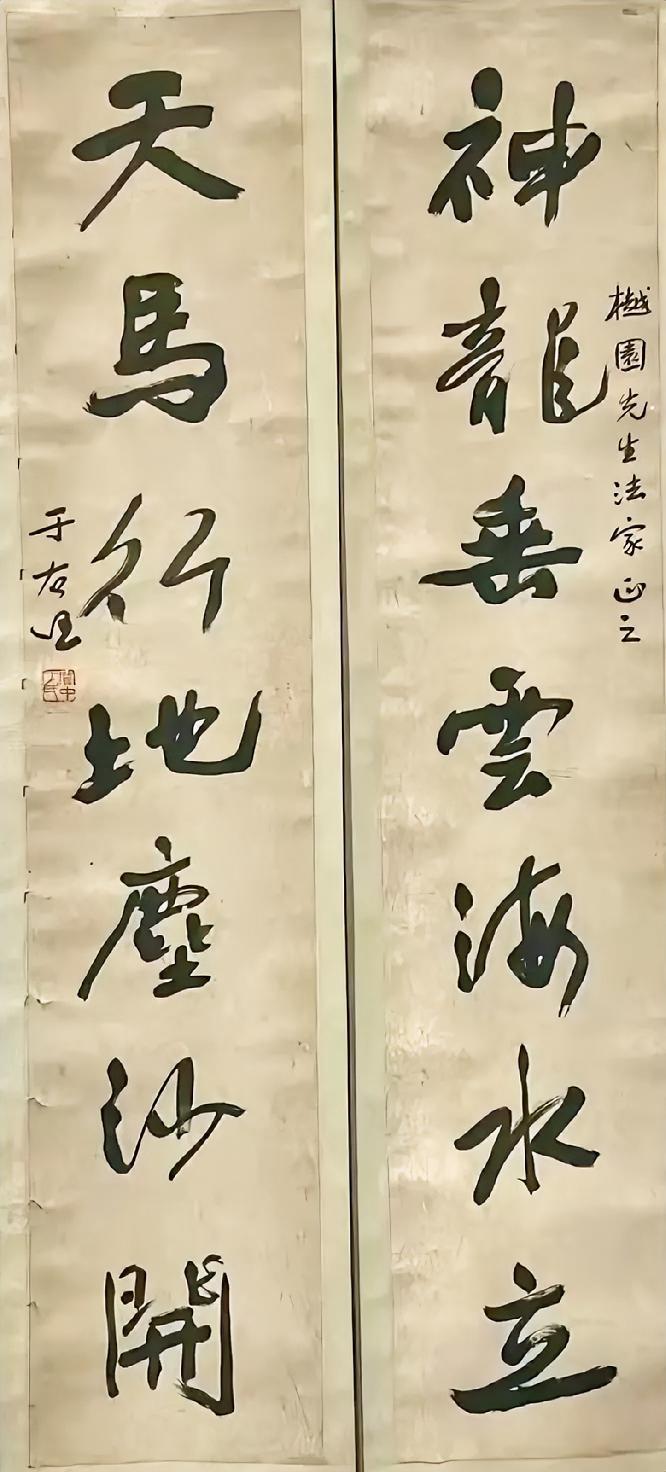 樾園先生法家正之
神龍垂雲海水立
天馬行地塵沙開
于右任